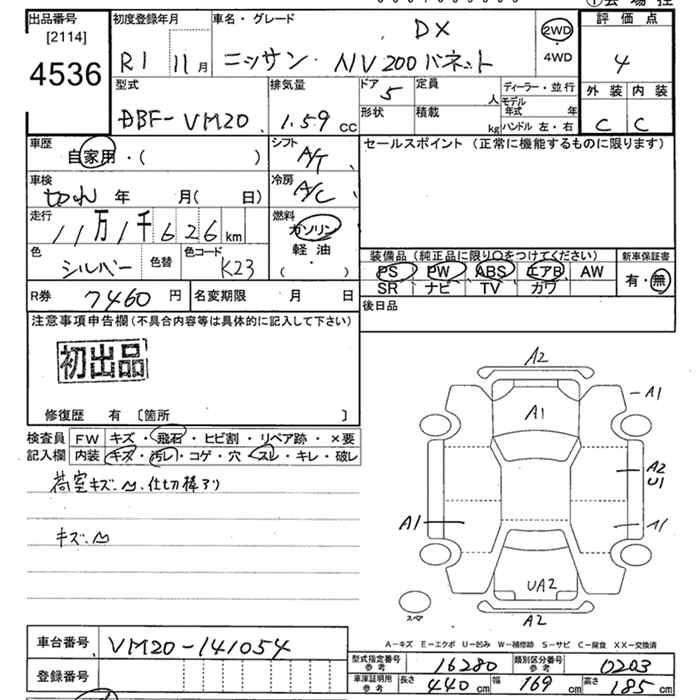 出品番号
[2114]
4536
初度登録年月
R1 11月
車名・グレード
DX
ニッサン NV200バネット
2WD
4WD
評価点
4
外装 内装
C C
型式
DBF-VM20
排気量
1.59 cc
ドア 5
形状
定員 人
積載 kg
ディーラー・並行
モデル年式 年
ハンドル 左・右
車歴
自家用・( )
シフト
A/T
セールスポイント(正常に機能するものに限ります)
車検
切れ 年 月( 日)
冷房
A/C
走行
11万1千626km
燃料
ガソリン
軽油
( ・ )
色
シルバー
色替
色コード
K23
装備品(純正品に限り○をつけてください)
PS PW ABS エアB AW
SR ナビ TV カワ
新車保証書
有・無
R券 7460円
名変期限 月 日
後日品
注意事項申告欄(不具合内容等は具体的に記入して下さい)
初出品
修復歴 有〔箇所 〕
検査員記入欄
FW キズ・飛石・ヒビ割・リペア跡・×要
内装 キズ・汚レ・コゲ・穴・スレ・キレ・破レ
荷室キズ、凹、仕切棒アリ
キズ、凹
A2
A1
A1
A2
U1
A1
A1
UA2
A2
スペア
A-キズ E-エクボ U-凹み W-補修跡 S-サビ C-腐食 XX-交換済
車台番号
VM20-141054
登録番号
型式指定番号参考 16280
類別区分番号参考 0203
車庫証明用参考 長さ 440cm 幅 169cm 高さ 185cm